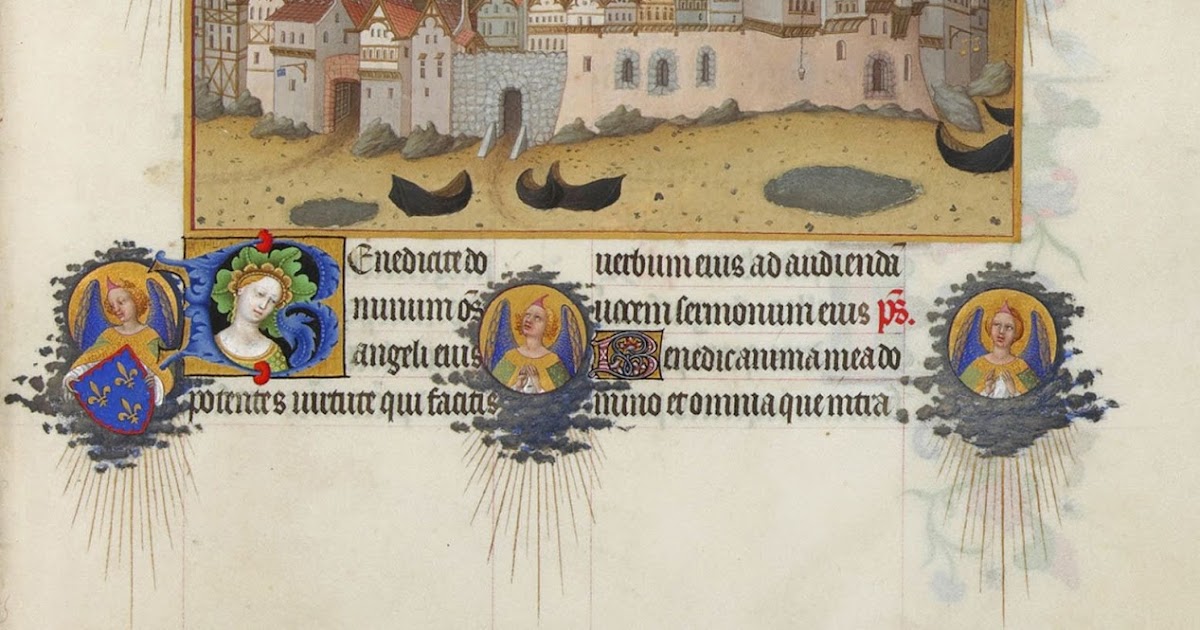 Benedicite do
minum om̄s
angeli eius
potentes uirtute qui facitis
uerbum eius ad audiendā
uocem sermonum eius p̄s.
Benedic anima mea do
mino et omnia que intra